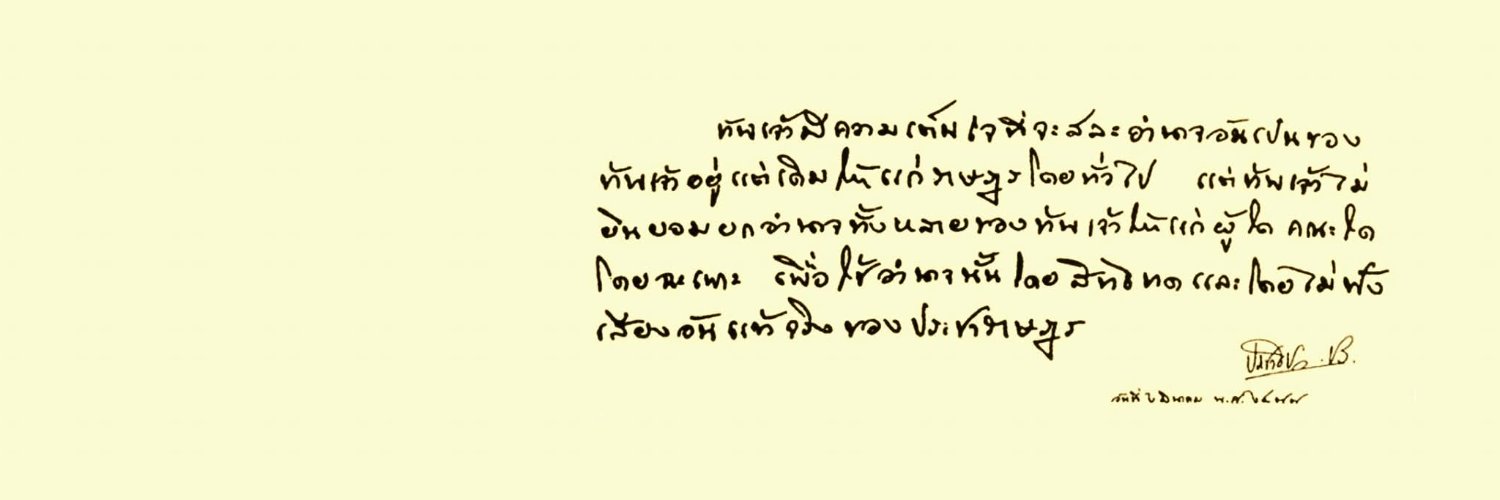 ข้าพเจ้ามีความเต็มใจที่จะสละอำนาจอันเป็นของ
ข้าพเจ้าอยู่แต่เดิมให้แก่ราษฎรโดยทั่วไป แต่ข้าพเจ้าไม่
ยินยอมยกอำนาจทั้งหลายของข้าพเจ้าให้แก่ผู้ใด คณะใด
โดยฉะเพาะ เพื่อใช้อำนาจนั้นโดยสิทธิขาดและโดยไม่ฟัง
เสียงอันแท้จริงของประชาราษฎร
ประชาธิปก ปร.
วันที่ ๒ มีนาคม พ.ศ. ๒๔๗๗